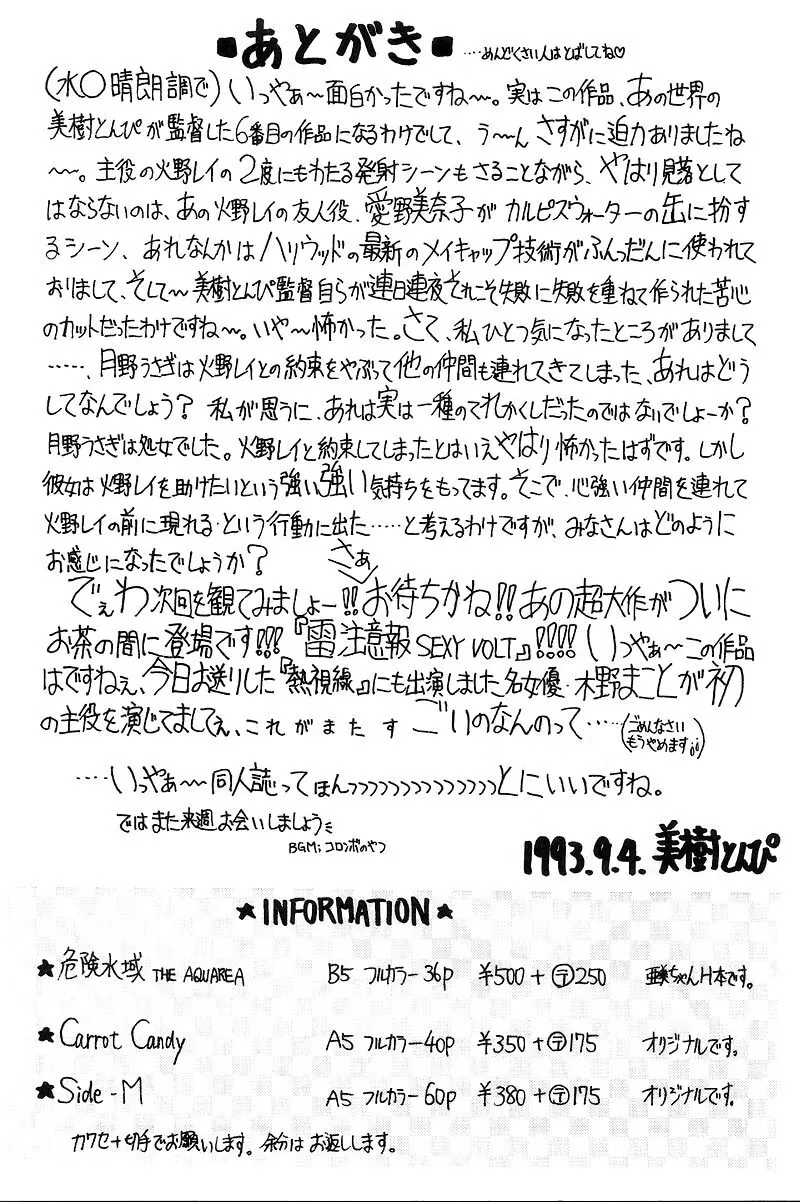 ■あとがき■ ....めんどくさい人はとばしてね♡
(水○晴朗調で)いっやぁ〜面白かったですね〜。実はこの作品、あの世界の
美樹とんぴが監督した6番目の作品になるわけでして、う〜ん さすがに迫力ありましたね
〜。主役の火野レイの2度にもわたる発射シーンもさることながら、やはり見落として
はならないのは、あの火野レイの友人役、愛野美奈子がカルピスウォーターの缶に扮す
るシーン、あれなんかはハリウッドの最新のメイキャップ技術がふんだんに使われて
おりまして、そして〜美樹とんぴ監督自らが連日連夜それこそ失敗に失敗を重ねて作られた苦心
のカットだったわけですね〜。いや〜怖かった。さて、私ひとつ気になったところがありまして
.....、月野うさぎは火野レイとの約束をやぶって他の仲間も連れてきてしまった、あれはどう
してなんでしょう?私が思うに、あれは実は一種のてれかくしだったのではないでしょーか?
月野うさぎは処女でした。火野レイと約束してしまったとはいえやはり怖かったはずです。しかし
彼女は火野レイを助けたいという強い、強い気持ちをもってます。そこで、心強い仲間を連れて
火野レイの前に現れる・という行動に出た.....と考えるわけですが、みなさんはどのように
お感じになったでしょうか?
さぁ
でぇわ次回を観てみましょー!!お待ちかね!!あの超大作がついに
お茶の間に登場です!!!『雷注意報SEXY VOLT』!!!!いっやぁ〜この作品
はですねぇ、今日お送りした『熱視線』にも出演しました名女優・木野まことが初
の主役を演じてましてぇ、これがまたすごいのなんのって.....(ごめんなさい
もうやめます;;)
....いっやぁ〜同人誌ってほんっっっっっっっっっっっっっっとにいいですね。
ではまた来週お会いしましょう
BGM;コロンボのやつ
1993.9.4. 美樹とんぴ
★INFORMATION★
★危険水域 THE AQUAREA B5 フルカラー36p ¥500+〒250 亜美ちゃんH本です。
★Carrot Candy A5 フルカラー40p ¥350+〒175 オリジナルです。
★Side-M A5 フルカラー60p ¥380+〒175 オリジナルです。
カワセ+切手でお願いします。余分はお返しします。